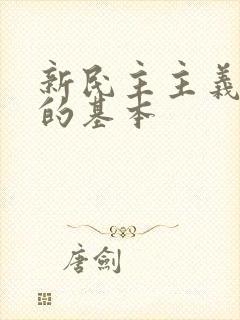 新民主主義
的基本
唐劍